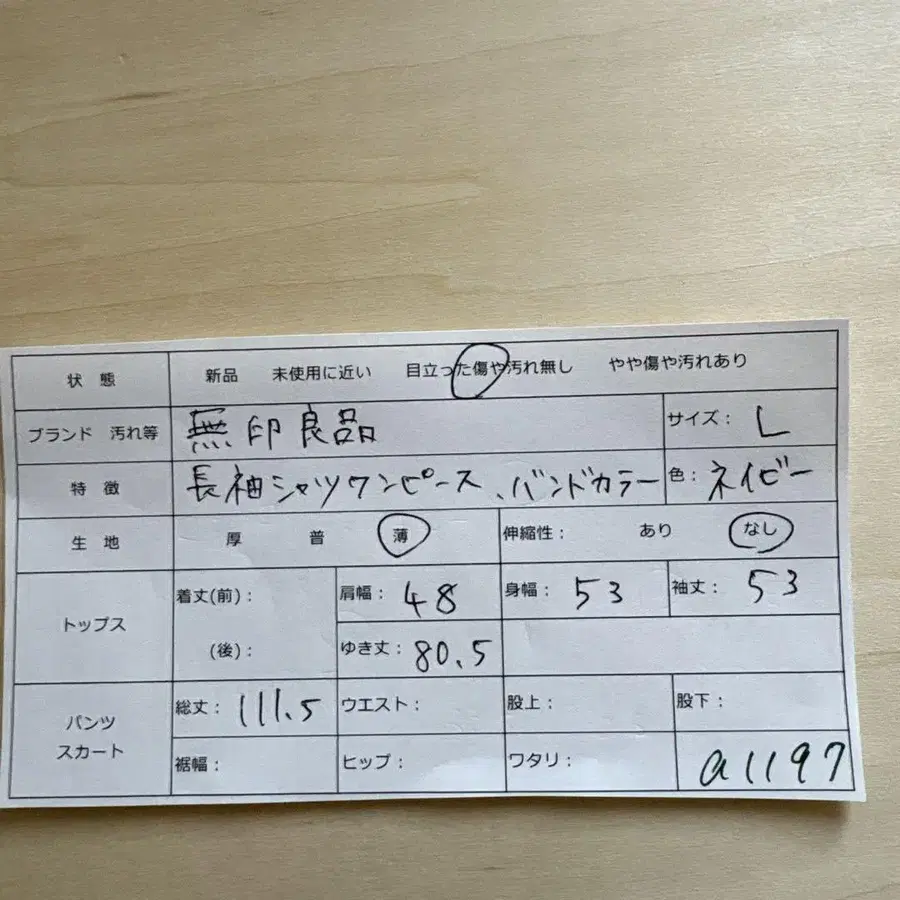 状 態 新品 未使用に近い 目立った傷や汚れ無し やや傷や汚れあり
ブランド 汚れ等 無印良品 サイズ: L
特 徴 長袖シャツワンピース、バンドカラー 色: ネイビー
生 地 厚 普 薄 伸縮性: あり なし
トップス 着丈(前): 肩幅: 48 身幅: 53 袖丈: 53
(後): ゆき丈: 80.5
パンツ スカート 総丈: 111.5 ウエスト: 股上: 股下:
裾幅: ヒップ: ワタリ: a1197